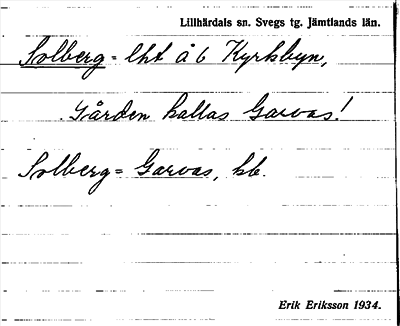 Lillhärdals sn. Svegs tg. Jämtlands län.
Solberg = lht å 6 Kyrkbyn,
Gården kallas Garvas!
Solberg = Garvas, kb.
Erik Eriksson 1934.